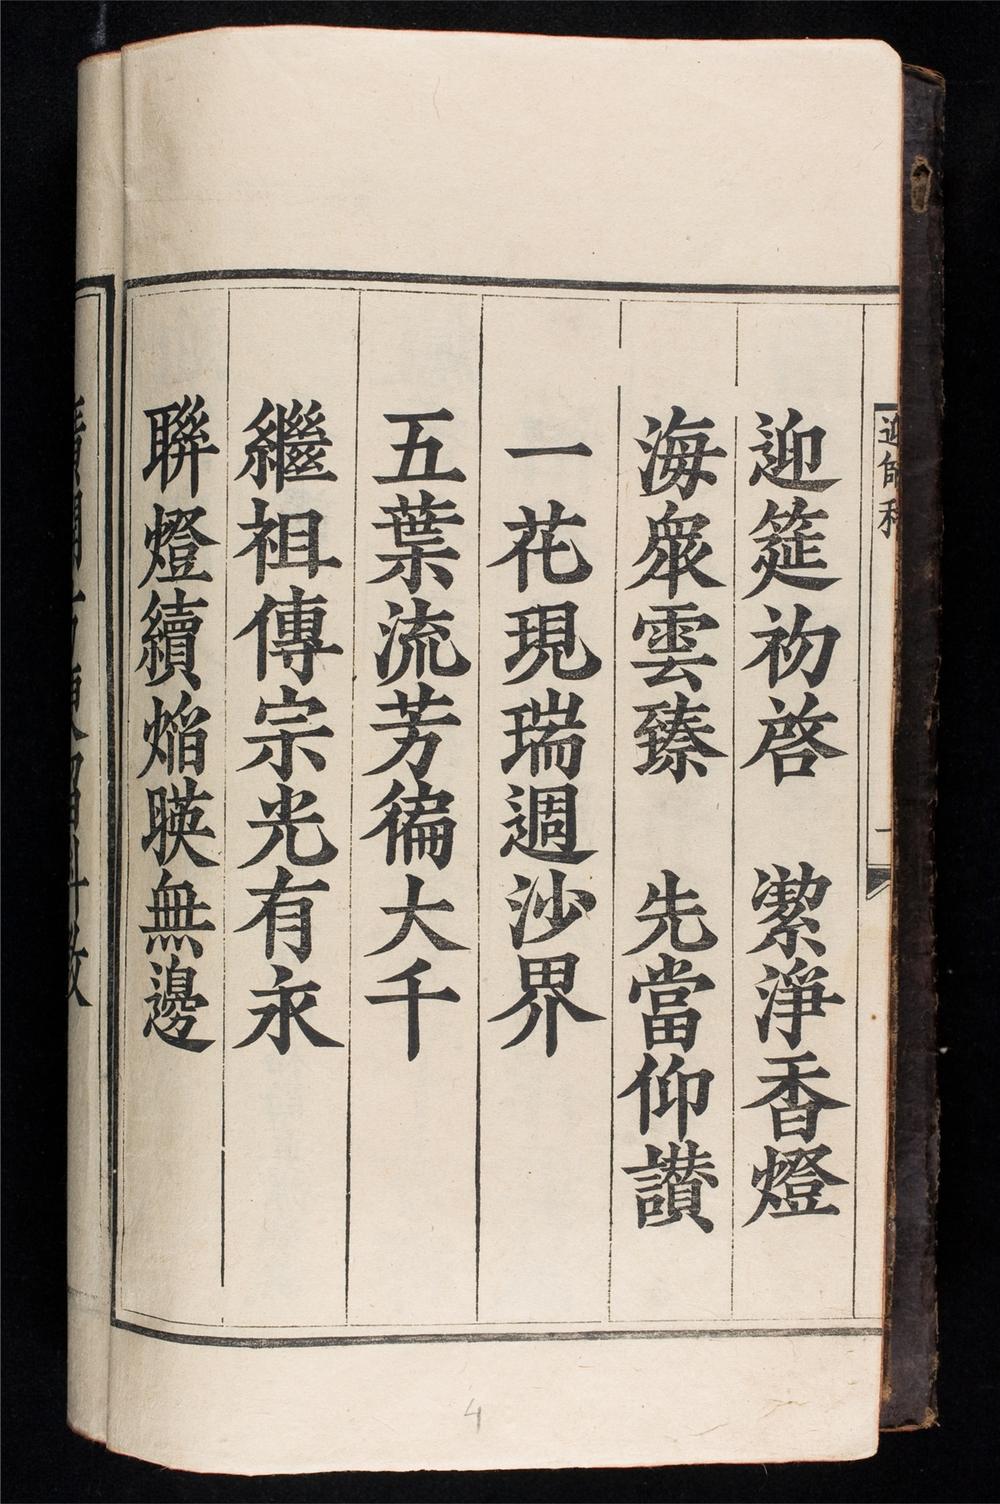 迎師科
迎筵初啓　潔淨香燈
海眾雲臻　先當仰讚
一花現瑞週沙界
五葉流芳徧大千
繼祖傳宗光有永
聯燈續焰暎無邊
4